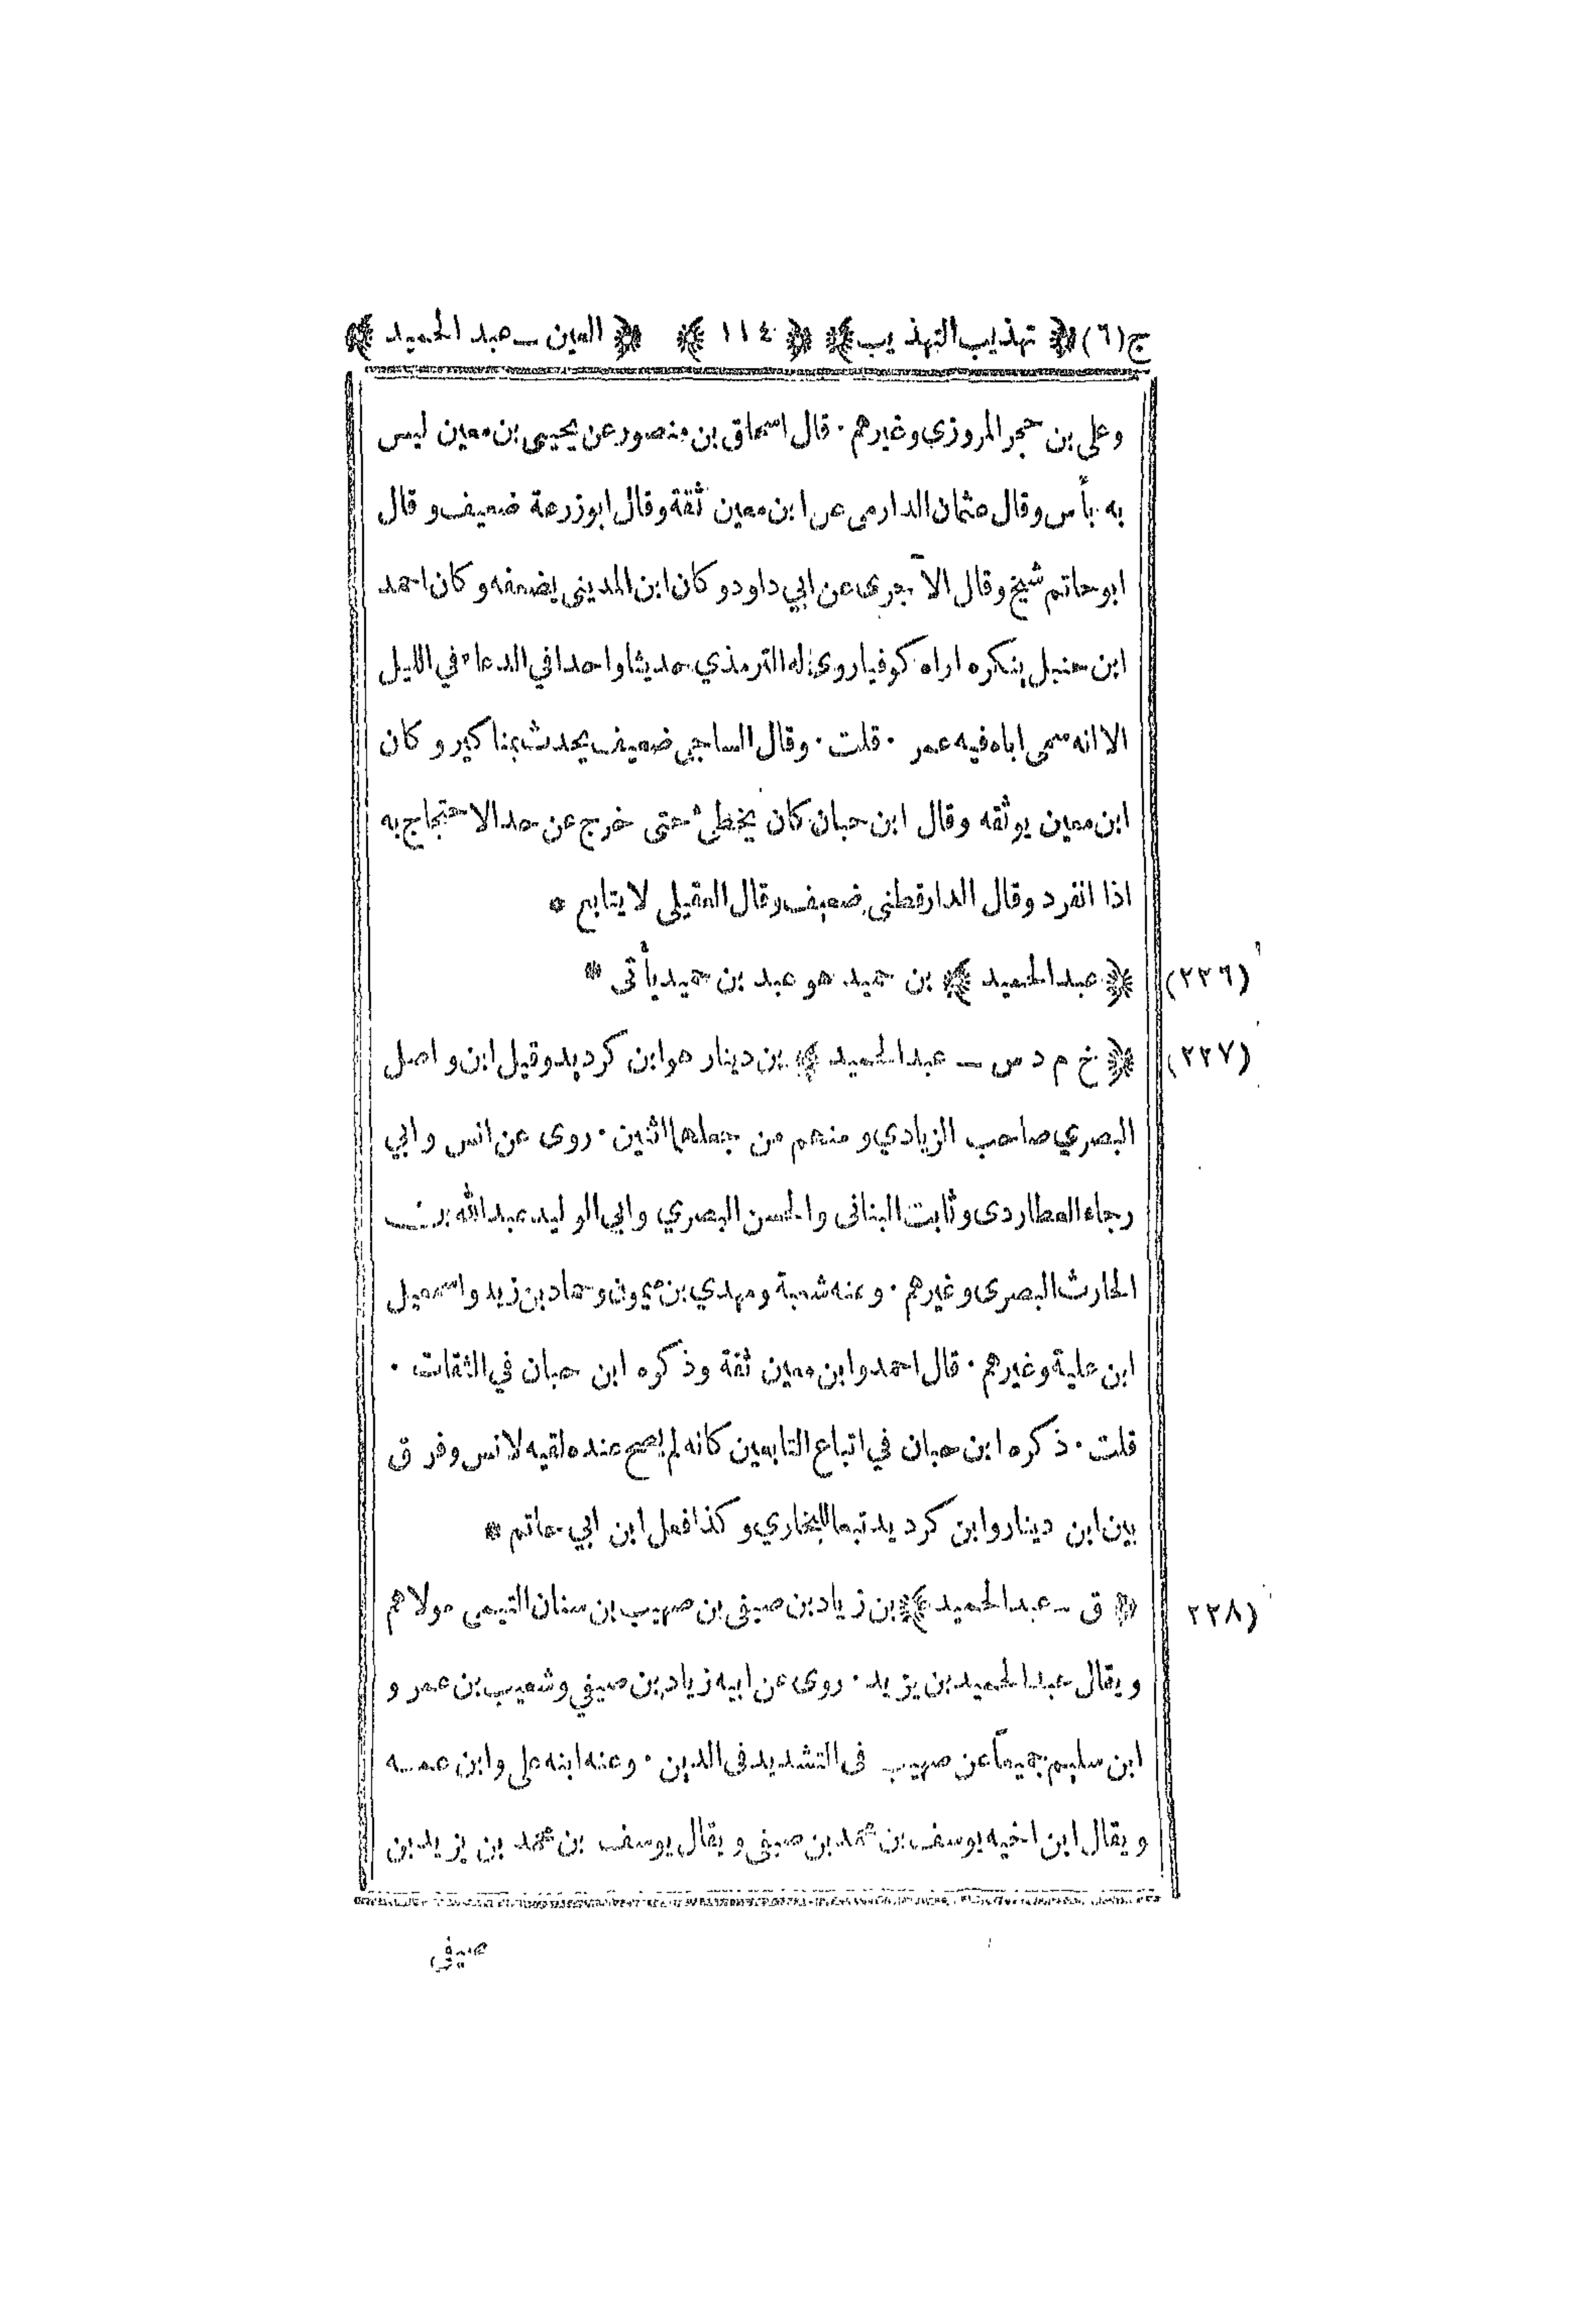 ج(٦) ﴿ تهذيب التهذيب ﴾ ﴿ ١١٤ ﴾ ﴿ العين ــ عبد الحميد ﴾
وعلى بن حجر المروزي وغيرهم ٠ قال اسحاق بن منصور عن يحيى بن معين ليس
به بأس وقال عثمان الدارمى عن ابن معين ثقة وقال ابو زرعة ضعيف و قال
ابو حاتم شيخ وقال الآجرى عن ابي داود و كان ابن المدينى يضعفه و كان احمد
ابن حنبل ينكره اراه كوفيا روى له الترمذي حديثا واحدا في الدعاء في الليل
الا انه سمى اباه فيه عمر ٠ قلت ٠ وقال الساجي ضعيف يحدث بمناكير و كان
ابن معين يوثقه وقال ابن حبان كان يخطئ حتى خرج عن حد الاحتجاج به
اذا انفرد وقال الدارقطنى ضعيف وقال العقيلى لا يتابع *
(٢٢٦) ﴿ عبد الحميد ﴾ بن حميد هو عبد بن حميد يأتى *
(٢٢٧) ﴿ خ م د س ــ عبد الحميد ﴾ بن دينار هو ابن كرديد وقيل ابن واصل
البصري صاحب الزيادي و منهم من جعلهما اثنين ٠ روى عن انس و ابي
رجاء العطاردى وثابت البنانى والحسن البصري وابي الوليد عبد الله بن
الحارث البصرى وغيرهم ٠ وعنه شعبة ومهدي بن ميمون وحماد بن زيد واسمعيل
ابن علية وغيرهم ٠ قال احمد وابن معين ثقة وذكره ابن حبان في الثقات ٠
قلت ٠ ذكره ابن حبان في اتباع التابعين كانه لم يصح عنده لقيه لانس وفرق
بين ابن دينار وابن كرديد تبعا للبخاري و كذا فعل ابن ابي حاتم *
(٢٢٨ ﴿ ق ــ عبد الحميد ﴾ بن زياد بن صيفى بن صهيب بن سنان التيمى مولاهم
و يقال عبد الحميد بن يزيد ٠ روى عن ابيه زياد بن صيفي وشعيب بن عمر و
ابن سليم جميعاً عن صهيب فى التشديد فى الدين ٠ وعنه ابنه على وابن عمه
و يقال ابن اخيه يوسف بن محمد بن صيفى و يقال يوسف بن محمد بن يزيد بن
صيفى